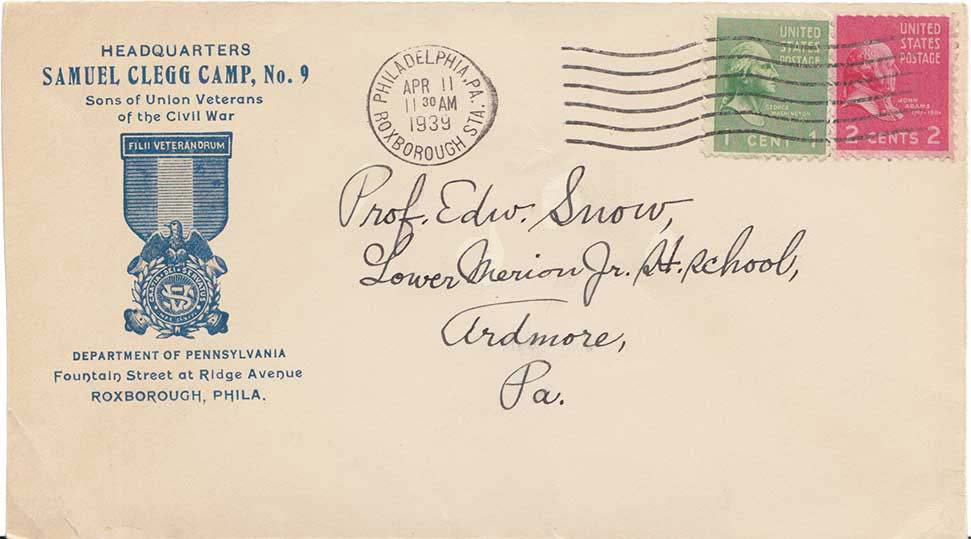 HEADQUARTERS
SAMUEL CLEGG CAMP, No. 9
Sons of Union Veterans
of the Civil War
FILII VETERANORUM
GRATIA DEI SERVATUS
DEPARTMENT OF PENNSYLVANIA
Fountain Street at Ridge Avenue
ROXBOROUGH, PHILA.
PHILADELPHIA, PA.
APR 11
11 30 AM
1939
ROXBOROUGH STA.
UNITED
STATES
POSTAGE
GEORGE
WASHINGTON
1 CENT 1
UNITED
STATES
POSTAGE
JOHN
ADAMS
2 CENTS 2
Prof. Edw. Snow,
Lower Merion Jr. H. School,
Ardmore,
Pa.